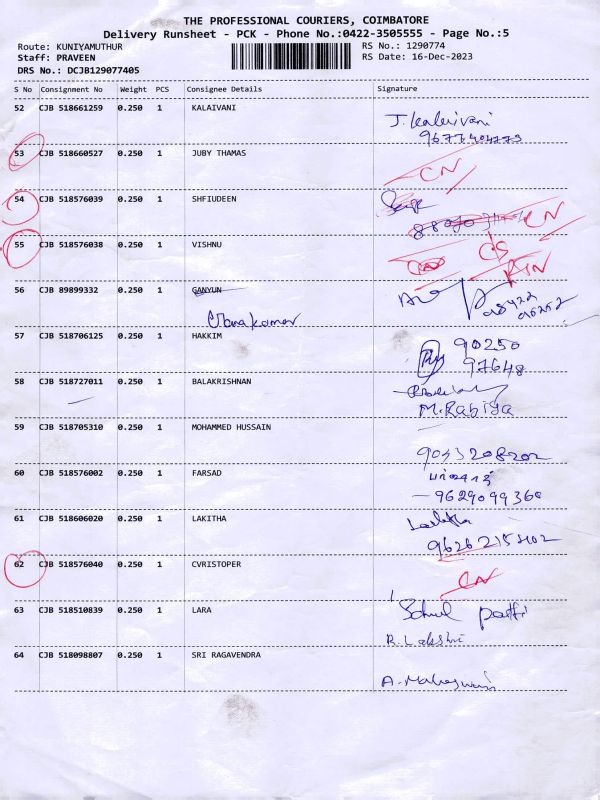 THE PROFESSIONAL COURIERS, COIMBATORE
Delivery Runsheet - PCK - Phone No.:0422-3505555 - Page No.:5
Route: KUNIYAMUTHUR RS No.: 1290774
Staff: PRAVEEN RS Date: 16-Dec-2023
DRS No.: DCJB129077405
S No Consignment No Weight PCS Consignee Details Signature
52 CJB 518661259 0.250 1 KALAIVANI
J. Kalaivani
53 CJB 518660527 0.250 1 JUBY THAMAS
CN
54 CJB 518576039 0.250 1 SHFIUDEEN
CN
55 CJB 518576038 0.250 1 VISHNU
CS
56 CJB 89899332 0.250 1 GANYUN
57 CJB 518706125 0.250 1 HAKKIM
90250
97648
58 CJB 518727011 0.250 1 BALAKRISHNAN
M. Rabiya
59 CJB 518705310 0.250 1 MOHAMMED HUSSAIN
60 CJB 518576002 0.250 1 FARSAD
9629099360
61 CJB 518606020 0.250 1 LAKITHA
Lakitha
62 CJB 518576040 0.250 1 CVRISTOPER
CN
63 CJB 518510839 0.250 1 LARA
R. Lakshmi
64 CJB 518098807 0.250 1 SRI RAGAVENDRA
A. Maheswari